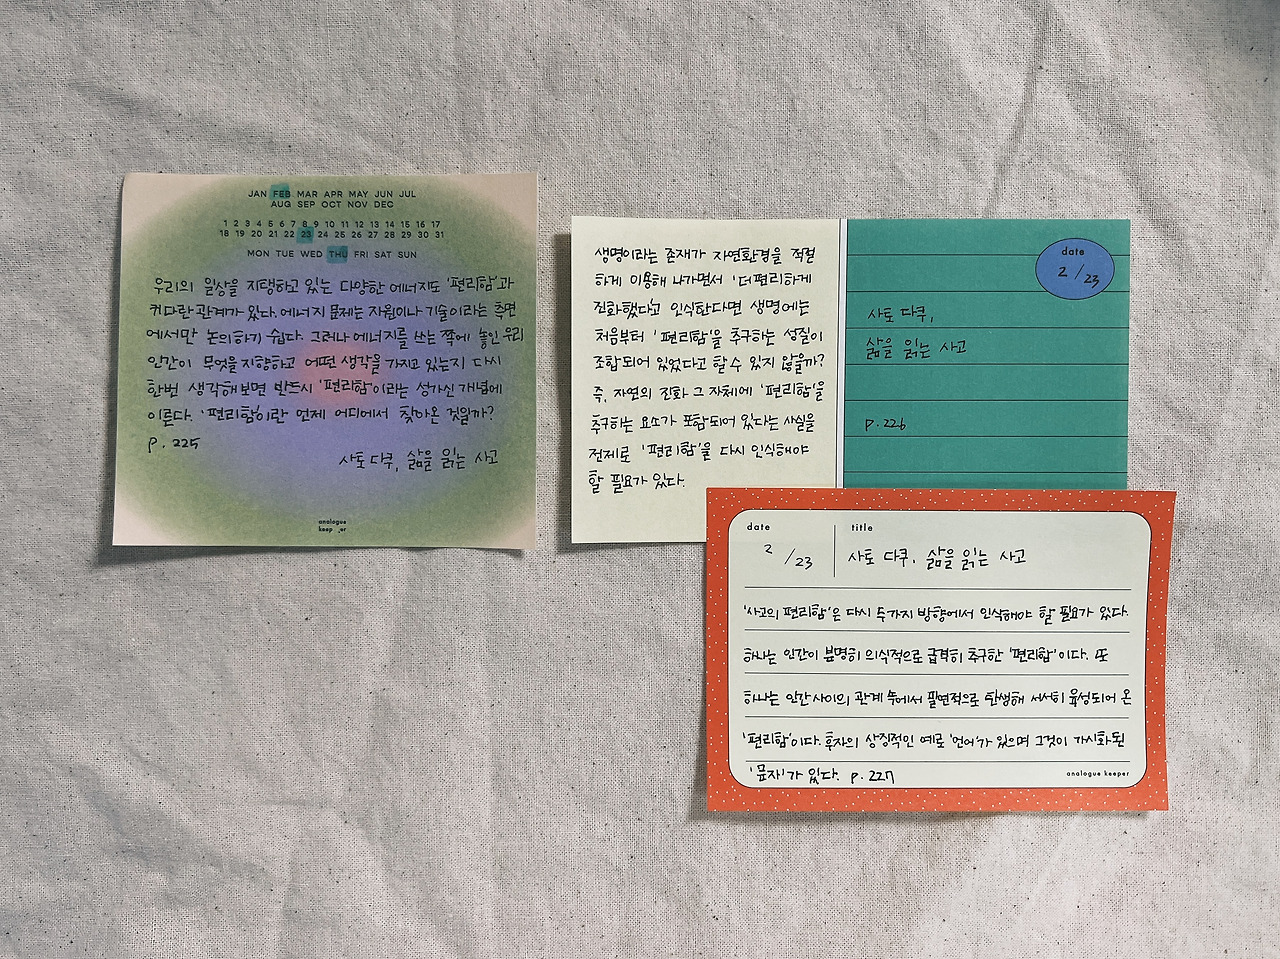 JAN FEB MAR APR MAY JUN JUL
AUG SEP OCT NOV DEC
1 2 3 4 5 6 7 8 9 10 11 12 13 14 15 16 17
18 19 20 21 22 23 24 25 26 27 28 29 30 31
MON TUE WED THU FRI SAT SUN
우리의 일상을 지탱하고 있는 다양한 에너지도 '편리함'과
커다란 관계가 있다. 에너지 문제는 자원이나 기술이라는 측면
에서만 논의하기 쉽다. 그러나 에너지를 쓰는 쪽에 놓인 우리
인간이 무엇을 지향하고 어떤 생각을 가지고 있는지 다시
한번 생각해보면 반드시 '편리함'이라는 성가신 개념에
이른다. '편리함'이란 언제 어디에서 찾아온 것일까?
p. 225
사토 다쿠, 삶을 읽는 사고
analogue
keep er
생명이라는 존재가 자연환경을 적절
하게 이용해 나가면서 '더 편리하게
진화했다'고 인식한다면 생명에는
처음부터 '편리함'을 추구하는 성질이
조합되어 있었다고 할 수 있지 않을까?
즉, 자연의 진화 그 자체에 '편리함'을
추구하는 요소가 포함되어 있다는 사실을
전제로 '편리함'을 다시 인식해야
할 필요가 있다.
date
2 / 23
사토 다쿠,
삶을 읽는 사고
p. 226
date title
2 / 23 사토 다쿠, 삶을 읽는 사고
'사고의 편리함'은 다시 두가지 방향에서 인식해야 할 필요가 있다.
하나는 인간이 분명히 의식적으로 급격히 추구한 '편리함'이다. 또
하나는 인간 사이의 관계 속에서 필연적으로 탄생해 서서히 육성되어 온
'편리함'이다. 후자의 상징적인 예로 '언어'가 있으며 그것이 가시화된
'문자'가 있다. p. 227
analogue keeper